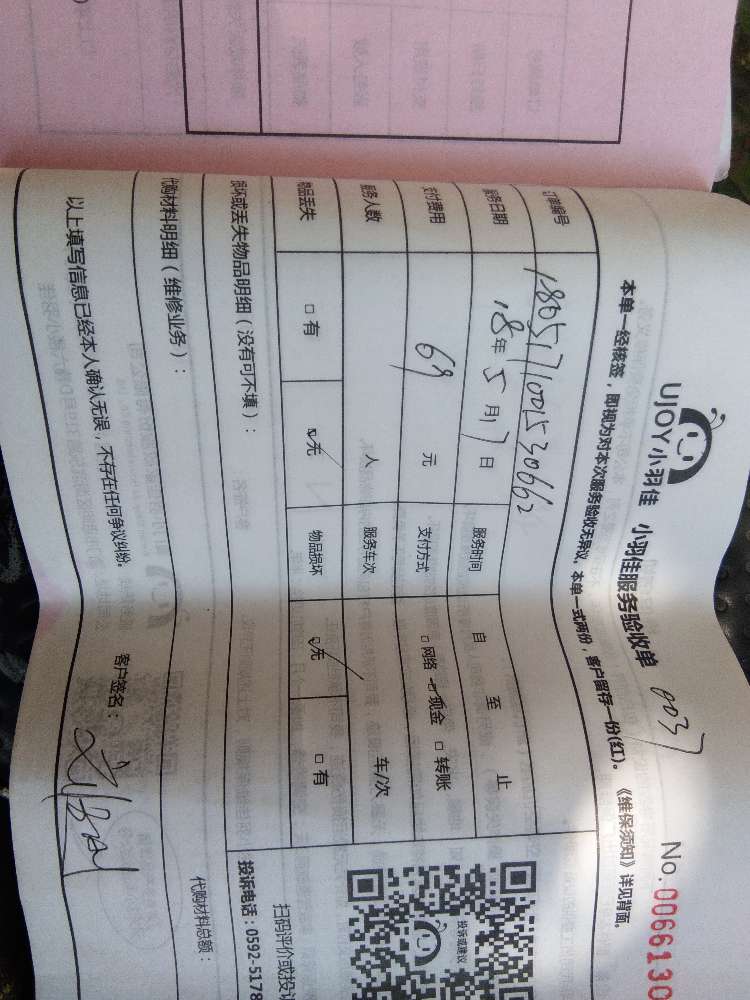 UJOY小羽佳 小羽佳服务验收单 0037
No.0066130
本单一经核签，即视为对本次服务验收无异议。本单一式两份，客户留存一份(红)。《维保须知》详见背面。
订单编号 1805171001530662
服务日期 18年 5月17日 服务时间 自 至 止
支付费用 69 元 支付方式 □网络 ☑现金 □转账
服务人数 人 服务车次 车/次
物品丢失 □有 ☑无 物品损坏 ☑无 □有
损坏或丢失物品明细（没有可不填）：
代购材料明细（维修业务）： 代购材料总额：
以上填写信息已经本人确认无误，不存在任何争议纠纷。 客户签名：
投诉或建议
扫码评价或投诉
投诉电话：0592-5178